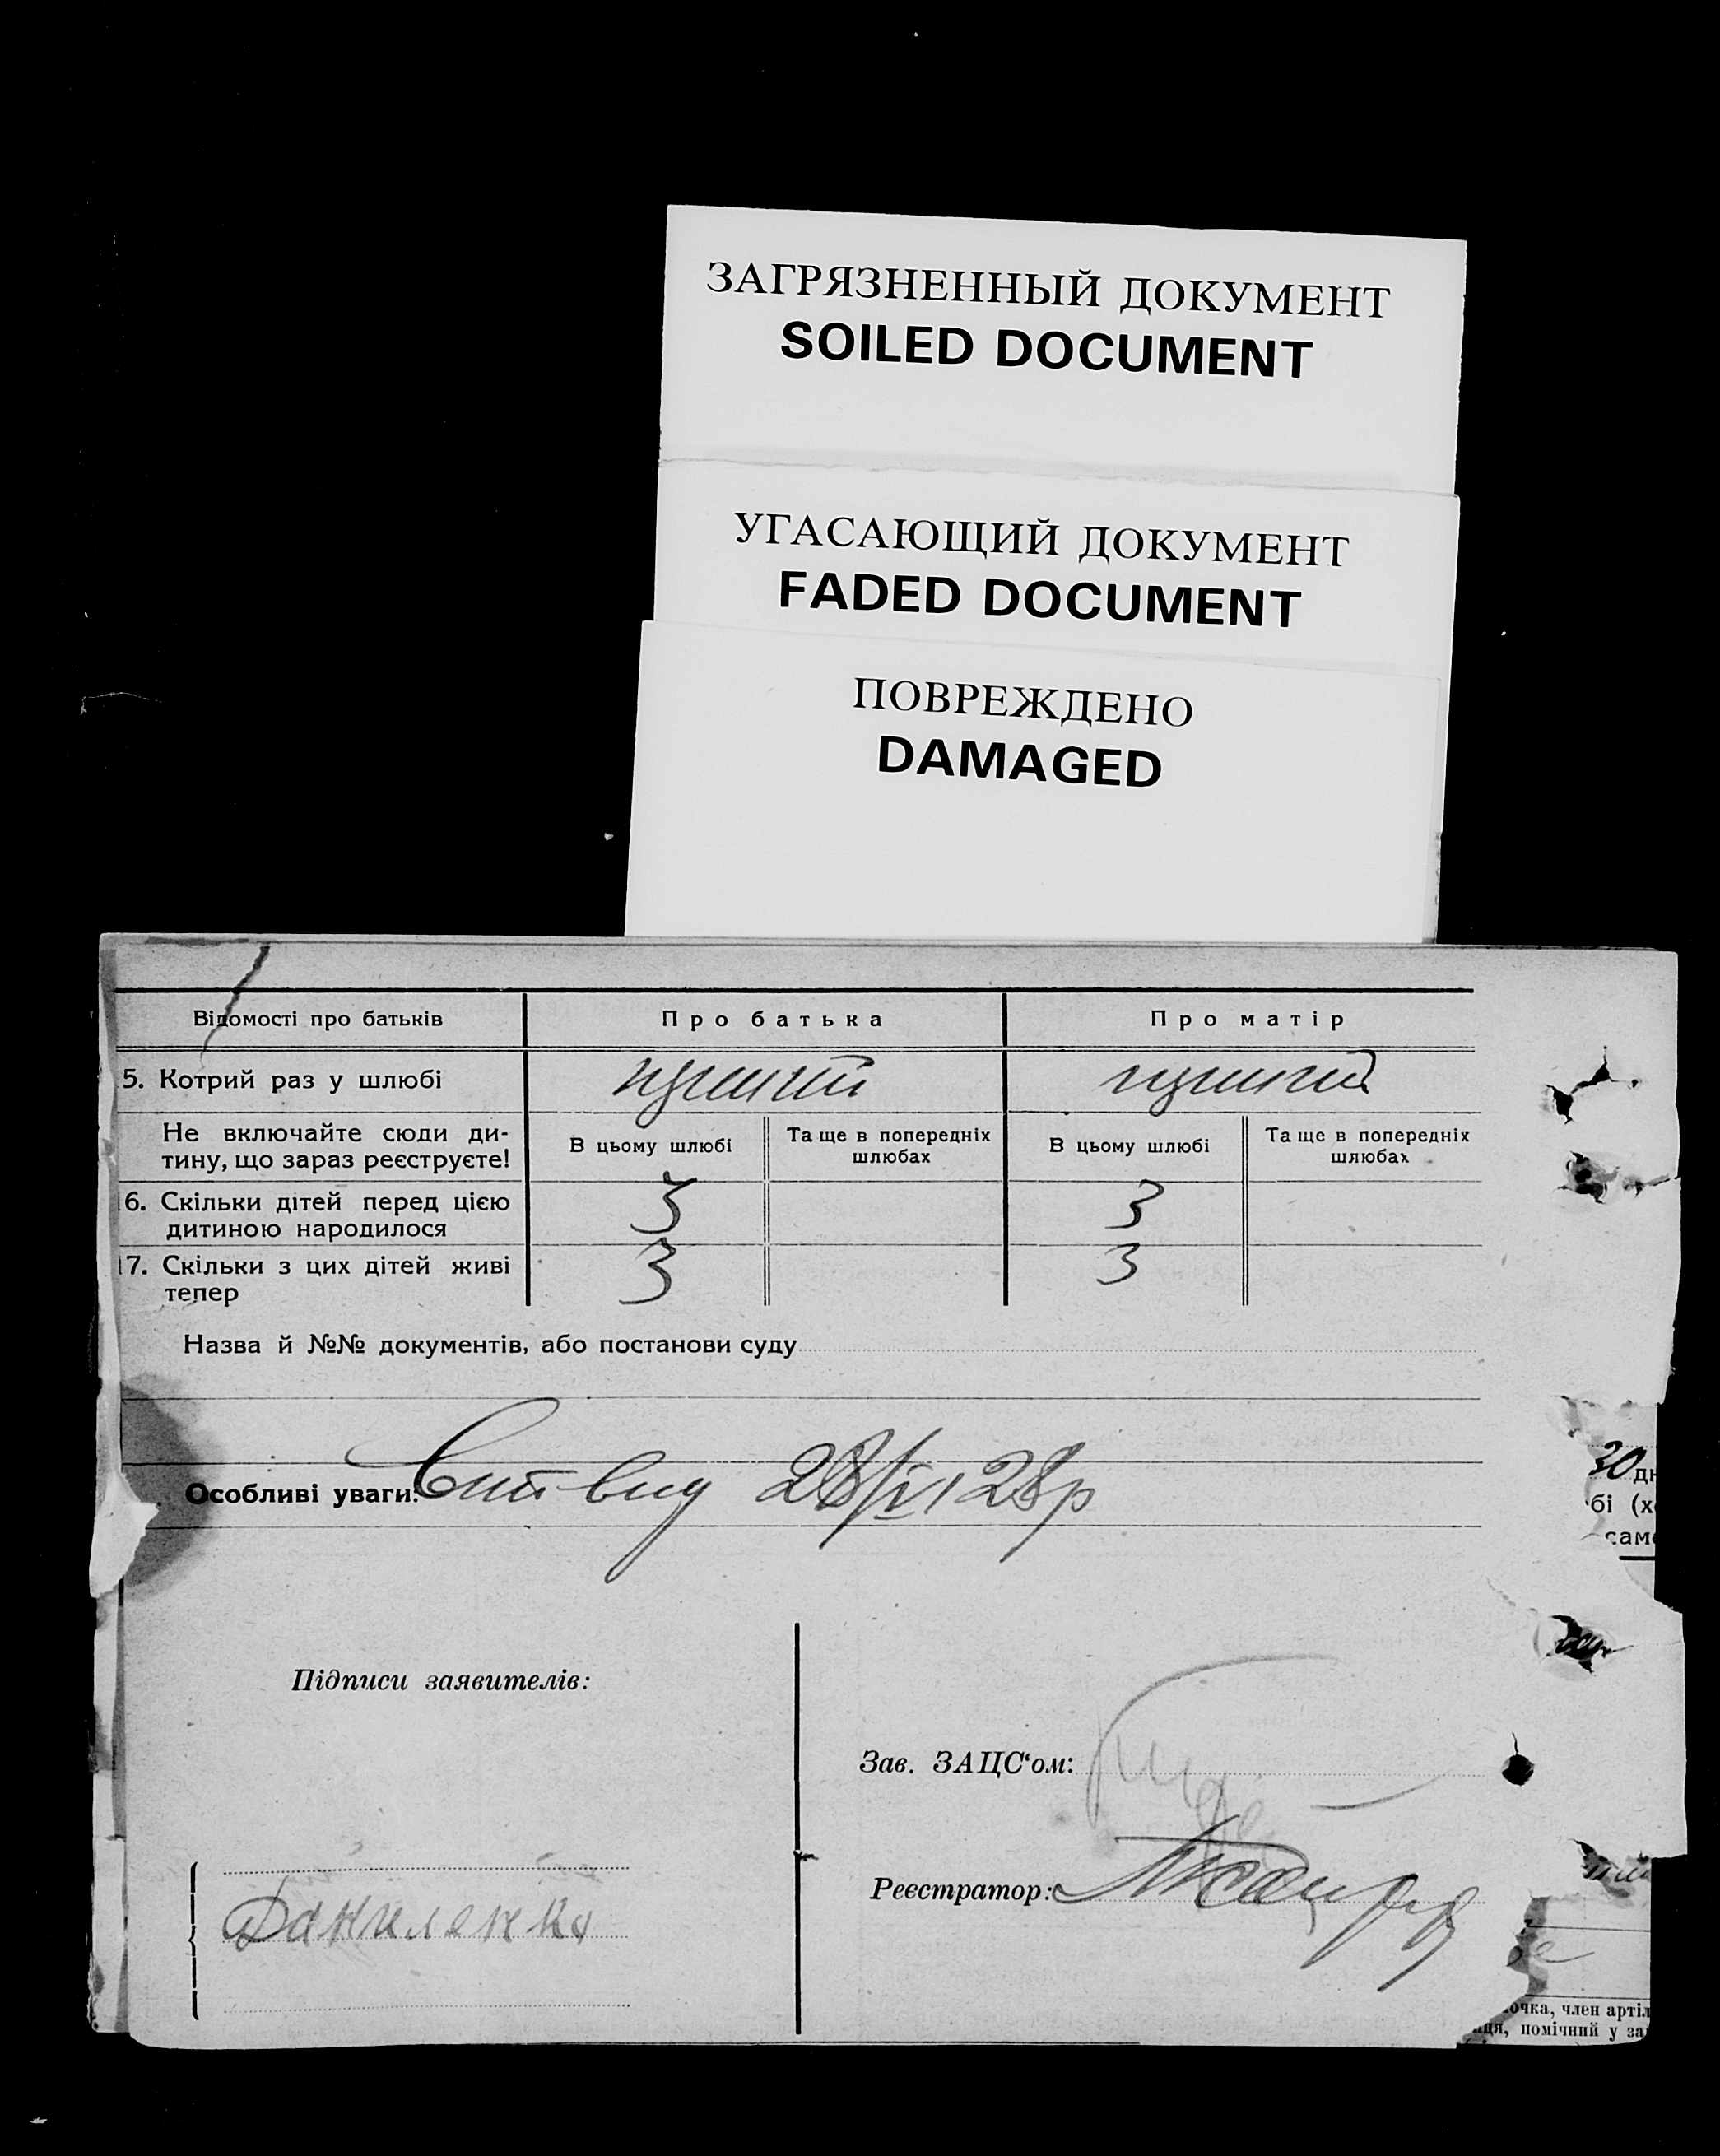 ЗАГРЯЗНЕННЫЙ ДОКУМЕНТ
SOILED DOCUMENT
УГАСАЮЩИЙ ДОКУМЕНТ
FADED DOCUMENT
ПОВРЕЖДЕНО
DAMAGED
Відомості про батьків Про батька Про матір
5. Котрий раз у шлюбі
Не включайте сюди ди-
тину, що зараз реєструєте!
В цьому шлюбі
Та ще в попередніх
шлюбах
В цьому шлюбі
Та ще в попередніх
шлюбах
16. Скільки дітей перед цією
дитиною народилося
3 3
17. Скільки з цих дітей живі
тепер
3 3
Назва й №№ документів, або постанови суду
Особливі уваги: 28/VI 28р
30 дн
бі (х
саме
Підписи заявителів:
Зав. ЗАЦС'ом:
Реєстратор:
Даниленко
очка, член артіл
ця, помічний у за